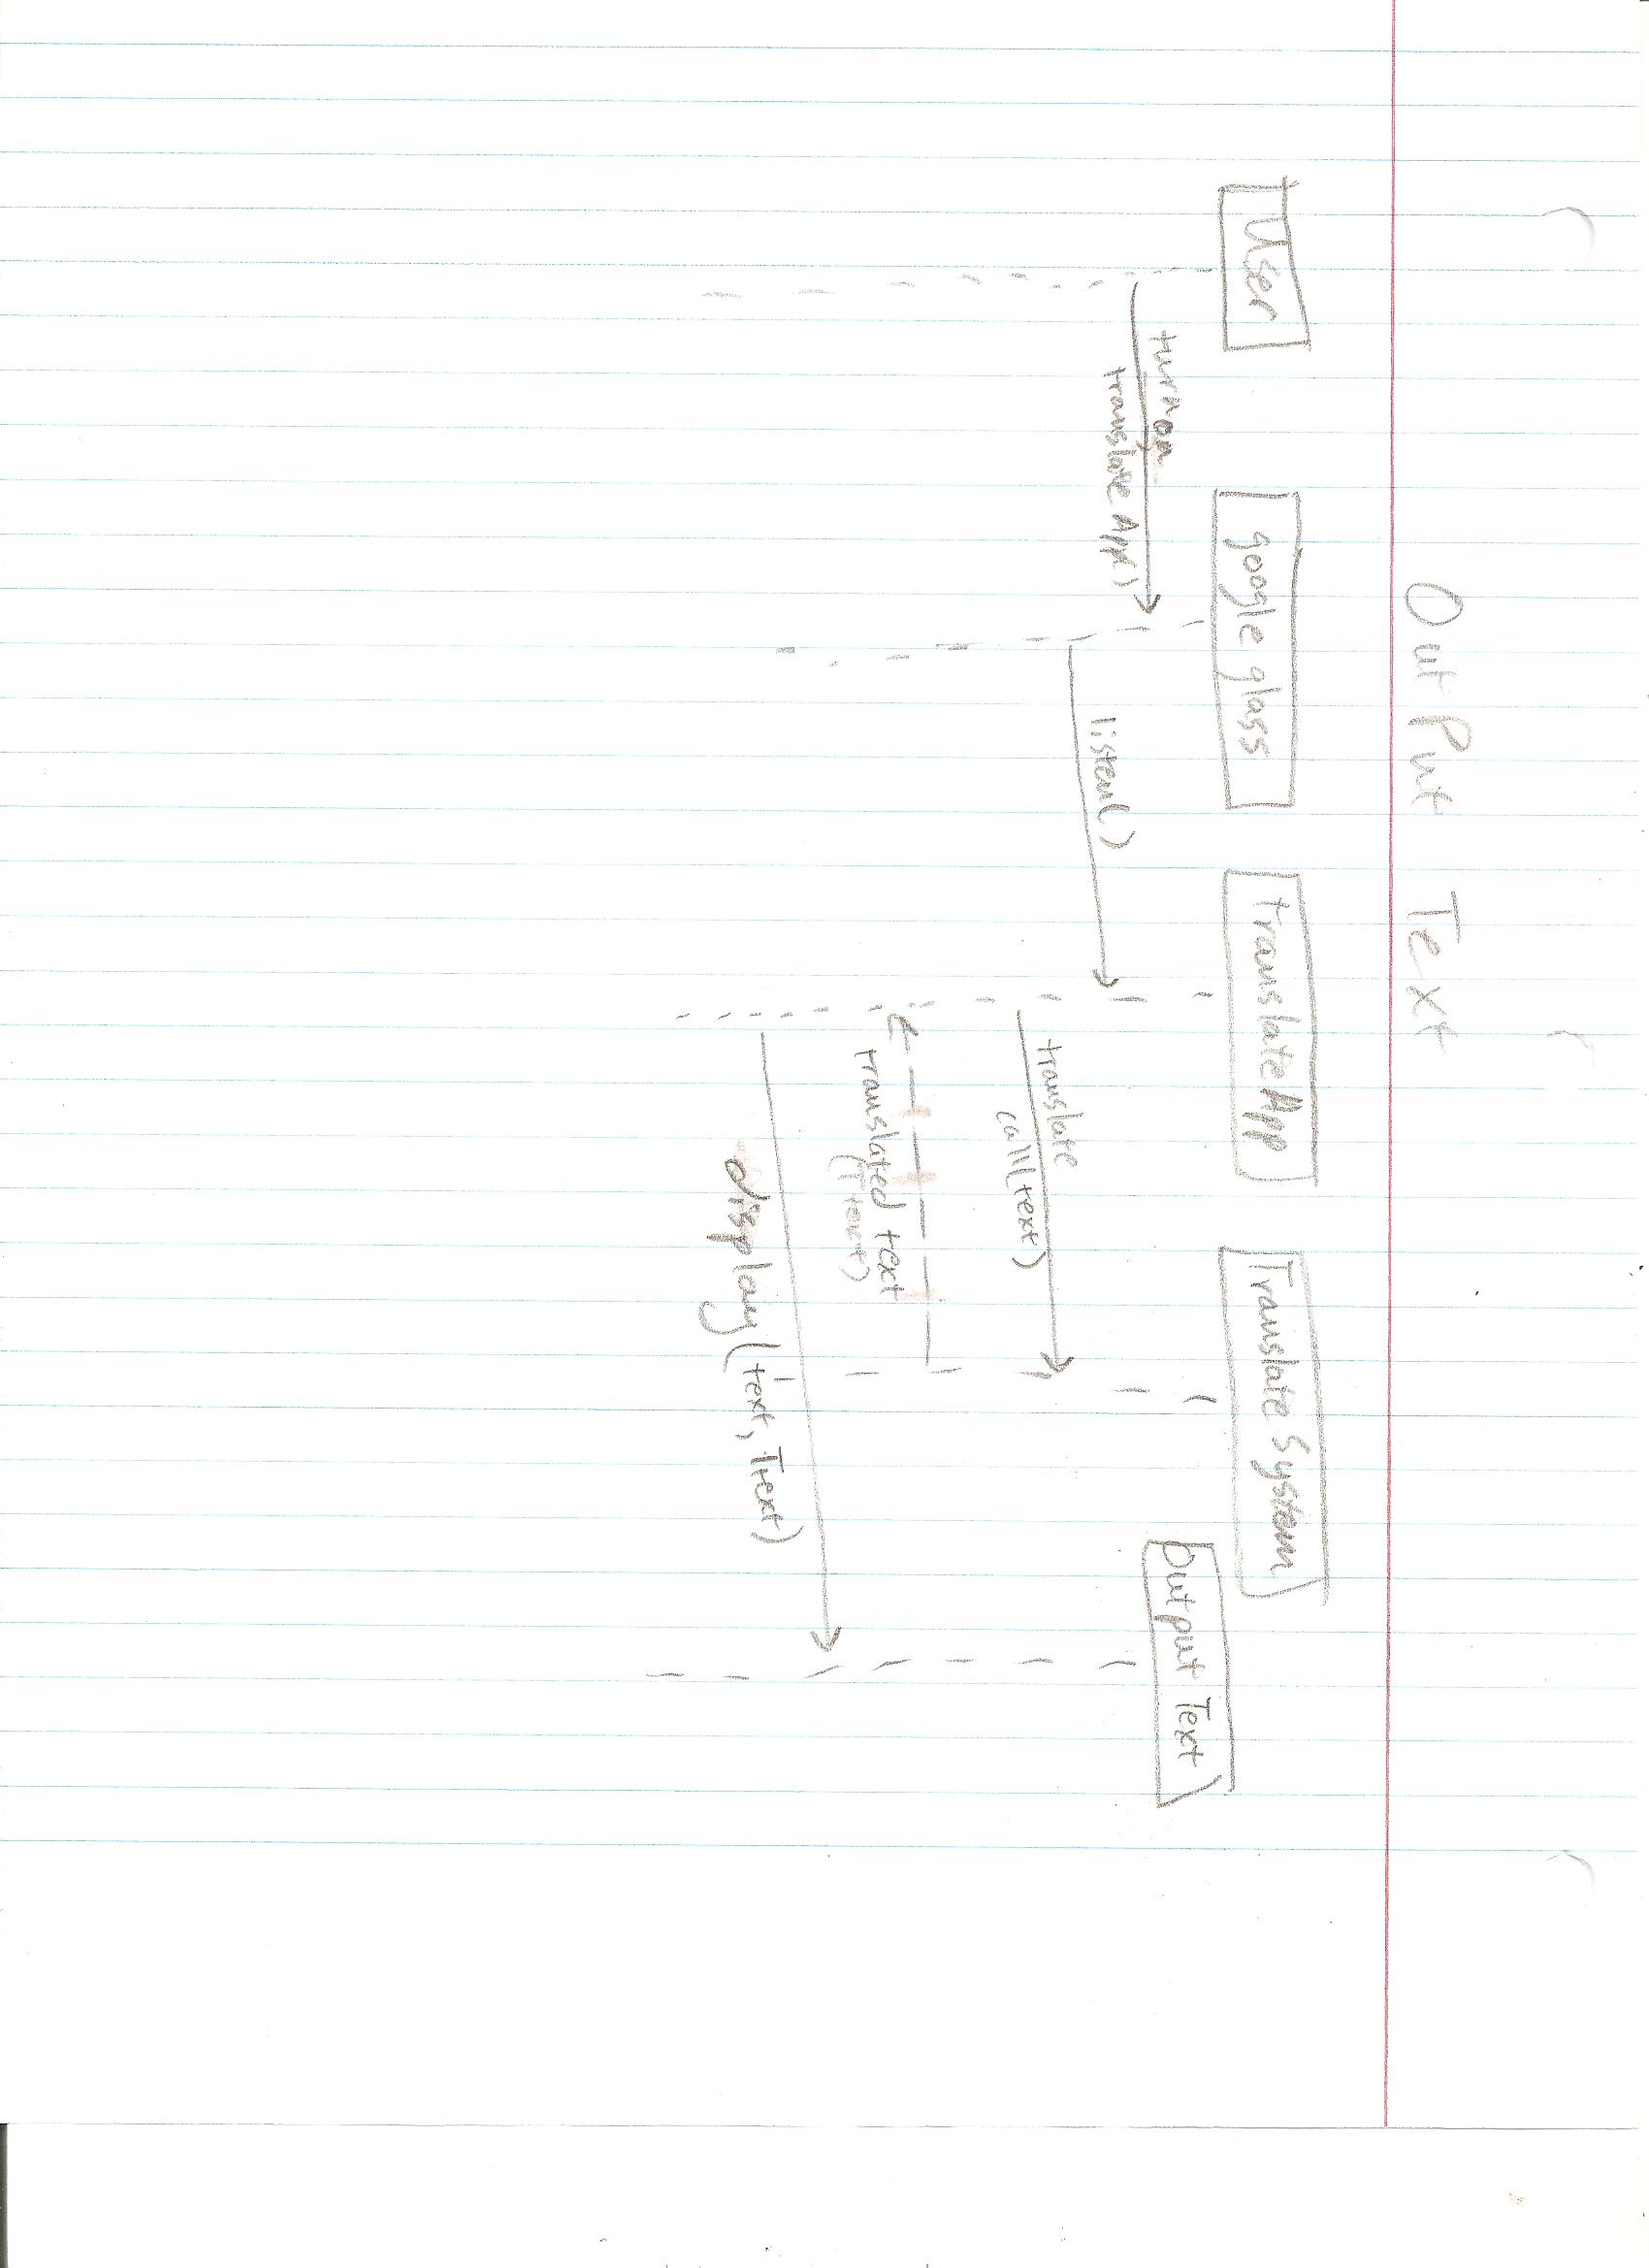 OutPut Text
User
google glass
translate App
Translate System
Output Text
turn on
translate App()
listen()
translate
call(text)
translated text
(Ttext)
display(text, Ttext)